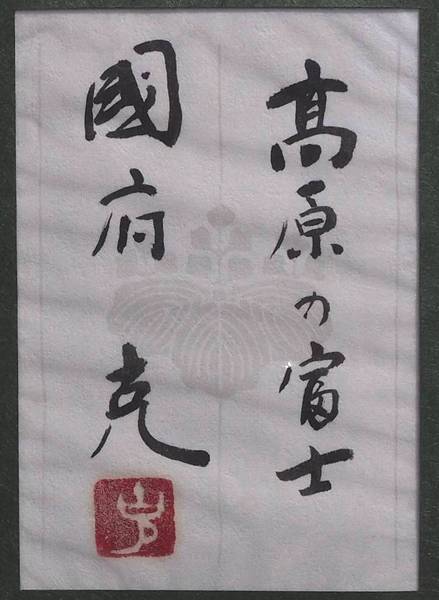 髙原の富士
國府克